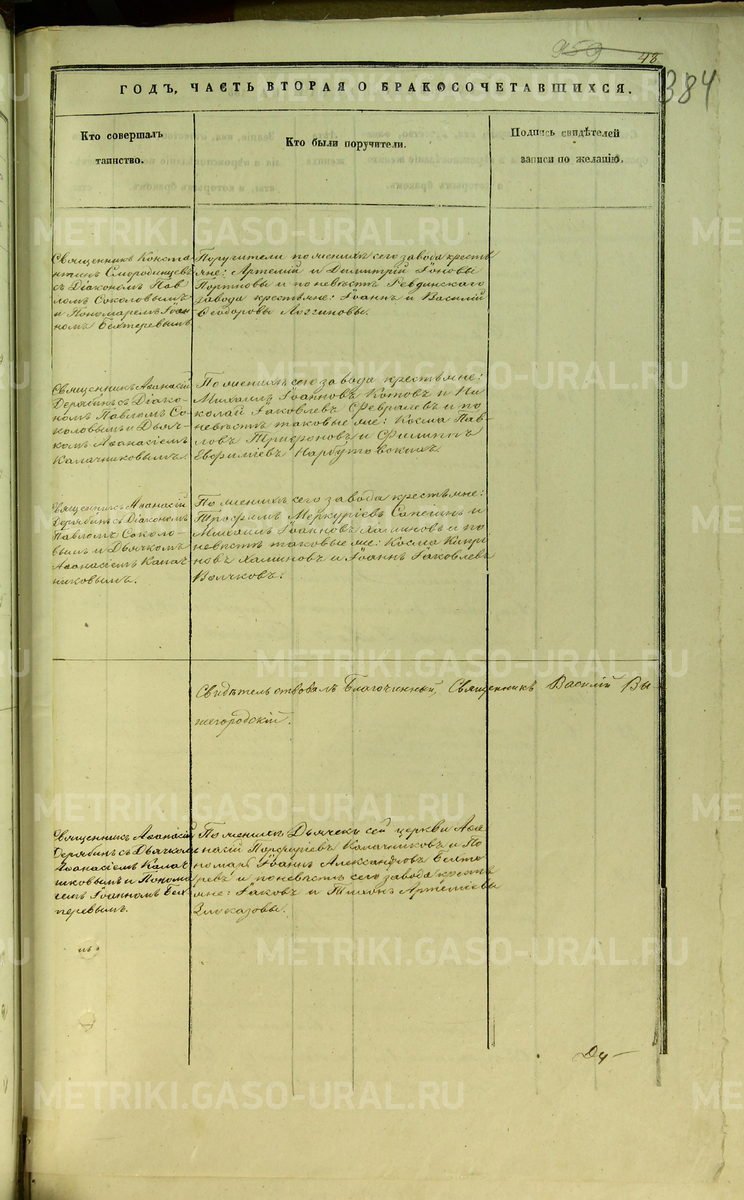 48
384
ГОДЪ, ЧАСТЬ ВТОРАЯ О БРАКОСОЧЕТАВШИХСЯ.
Кто совершалъ
таинство.
Кто были поручители.
Подпись свидѣтелей
записи по желанію.
Священникъ Конста
нтинъ Смородинцевъ
съ Діакономъ Пав
ломъ Соколовымъ
и Пономаремъ Іоан
номъ Бехтеревымъ
Поручители по женихѣ сего завода кресть
яне: Артемій и Димитрій Іоновы
Портновы и по невѣстѣ Ревдинскаго
завода крестьяне: Іоаннъ и Василій
Ѳеодоровы Логгиновы.
Священникъ Аѳанасій
Дерябинъ съ Діако-
номъ Павломъ Со
коловымъ и Дьяч-
комъ Аѳанасіемъ
Калачниковымъ.
По женихѣ сего завода крестьяне:
Михаилъ Іоанновъ Котовъ и Ни
колай Іаковлевъ и по
невѣстѣ таковые же: Косма Пав
ловъ Трифоновъ и Филиппъ
Евфиміевъ
Священникъ Аѳанасій
Дерябинъ съ Діакономъ
Павломъ Соколо-
вымъ и Дьячкомъ
Аѳанасіемъ Калач-
никовымъ.
По женихѣ сего завода крестьяне:
Трофимъ Меркуріевъ Сапегинъ и
Михаилъ Іоанновъ Халиновъ и по
невѣстѣ таковые же: Косма Кипрі
новъ Халиновъ и Іоаннъ Іаковлевъ
Волчковъ.
Свидѣтельствовалъ Благочинный, Священникъ Василій Вы
шегородскій.
Священникъ Аѳанасій
Дерябинъ съ Дьячкомъ
Аѳанасіемъ Калач
никовымъ и Понома
ремъ Іоанномъ Бех
теревымъ.
По женихѣ Дьячекъ сей церкви Аѳа
насій Порфиріевъ Калачниковъ и По
номарь Іоаннъ Александровъ Бехте
ревъ и по невѣстѣ сего завода кресть
яне: Іаковъ и Тихонъ Артеміевы
Злоказовы.
METRIKI.GASO-URAL.RU
METRIKI.GASO-URAL.RU
METRIKI.GASO-URAL.RU
METRIKI.GASO-URAL.RU
METRIKI.GASO-URAL.RU
METRIKI.GASO-URAL.RU
METRIKI.GASO-URAL.RU
METRIKI.GASO-URAL.RU